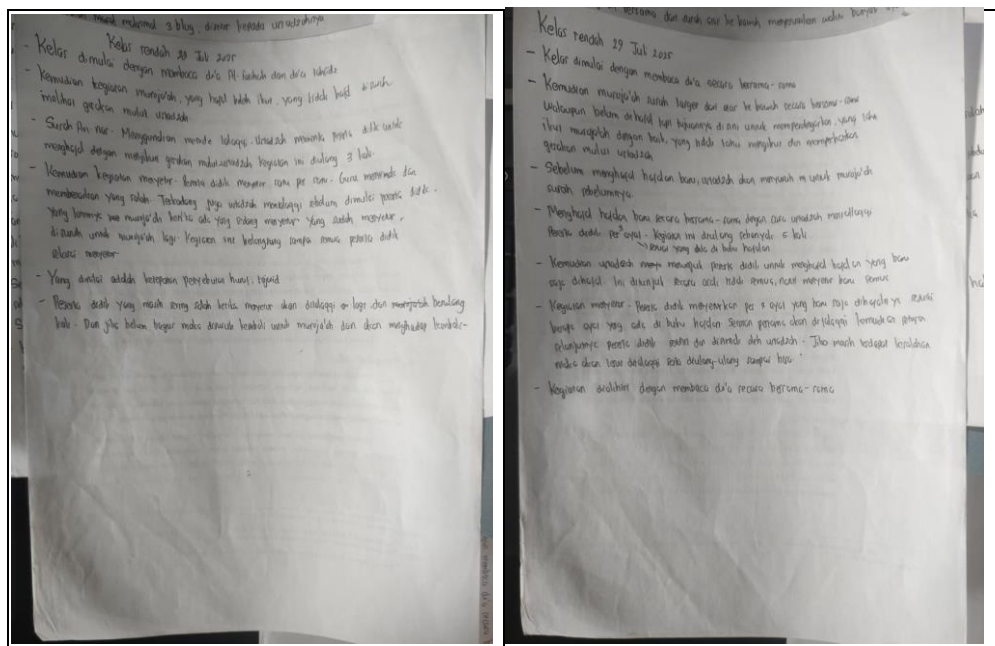 Kelas rendah 28 Juli 2025
- Kelas dimulai dengan membaca do'a Al-fatihah dan do'a
- Kemudian kegiatan muroja'ah, yang hafal boleh ikut, yang tidak hafal disuruh
melihat gerakan mulut ustadzah.
- Surah An nur. Menggunakan metode talaqqi. Ustadzah meminta peserta didik untuk
menghafal dengan mengikuti gerakan mulut ustadzah kegiatan ini diulang 3 kali.
- Kemudian kegiatan menyetor. Peserta didik menyetor satu per satu. Guru menyimak dan
membenarkan yang salah. Terkadang juga ustadzah mentalaqqi sebelum dimulai peserta didik.
Yang lainnya muroja'ah ketika ada yang sedang menyetor. Yang sudah menyetor,
disuruh untuk muroja'ah lagi. Kegiatan ini berlangsung sampai semua peserta didik
selesai menyetor
- Yang dinilai adalah ketepatan penyebutan huruf, tajwid
- Peserta didik yang masih sering salah ketika menyetor akan ditalaqqi lagi dan muroja'ah berulang
kali. Dan jika belum bagus maka disuruh kembali untuk muroja'ah dan akan menghadap kembali.
Kelas rendah 29 Juli 2025
- Kelas dimulai dengan membaca do'a secara bersama-sama
- Kemudian muroja'ah surah dari atas ke bawah secara bersama-sama
walaupun belum dihafal tapi tujuannya disini untuk memperdengarkan, yang tahu
ikut muroja'ah dengan baik, yang tidak tahu mengikut dan memperhatikan
gerakan mulut ustadzah
- Sebelum menghafal hafalan baru, ustadzah akan menyuruh untuk muroja'ah
surah sebelumnya.
- Menghafal hafalan baru secara bersama-sama dengan cara ustadzah mentalaqqi
Peserta didik per ayat. Kegiatan ini diulang sebanyak 5 kali
sesuai yang ada di buku hafalan
- Kemudian ustadzah menunjuk peserta didik untuk menghafal hafalan yang baru
saja dihafal. Ini ditunjuk secara acak tidak semua, nanti menyetor baru semua
- Kegiatan menyetor. Peserta didik menyetorkan per ayat yang baru saja dihafalnya sesuai
berapa ayat yang ada di buku hafalan. Setoran pertama akan ditalaqqi kemudian
selanjutnya peserta didik sendiri dan disimak oleh ustadzah. Jika masih terdapat kesalahan
maka akan terus ditalaqqi serta diulang-ulang sampai bisa.
- Kegiatan diakhiri dengan membaca do'a secara bersama-sama